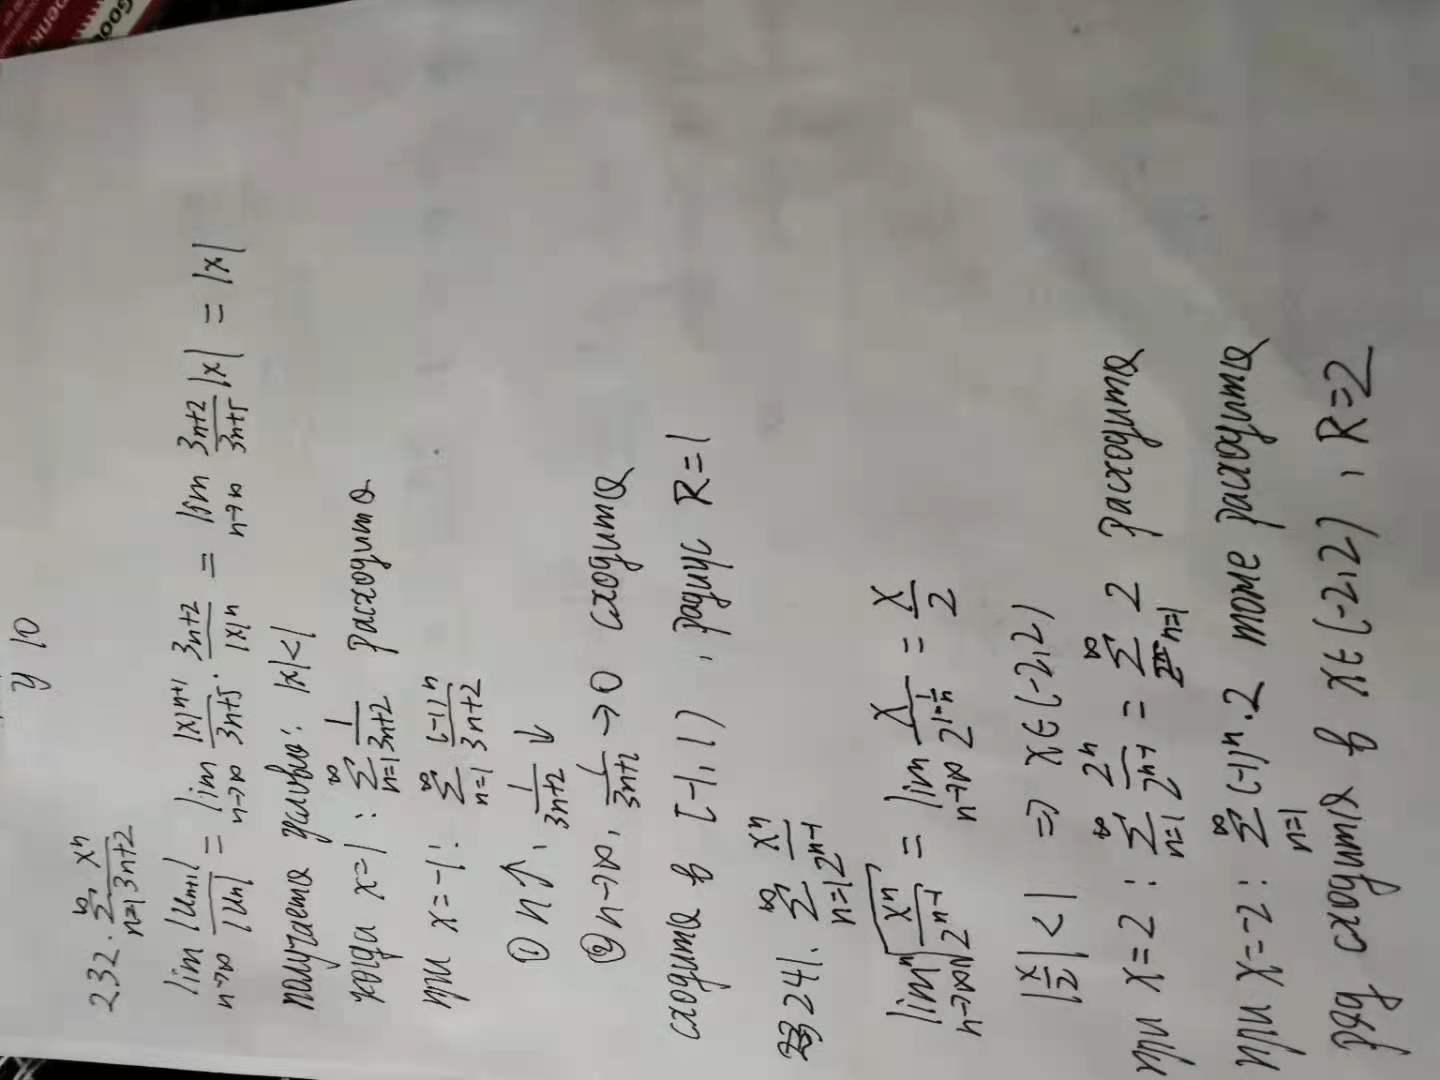 У 10
232. ∑_{n=1}^{∞} x^n/(3n+2)
lim_{n→∞} |U_{n+1}|/|U_n| = lim_{n→∞} |x|^{n+1}/(3n+5) · (3n+2)/|x|^n = lim_{n→∞} (3n+2)/(3n+5) |x| = |x|
получается условие: |x|<1
когда x=1 : ∑_{n=1}^{∞} 1/(3n+2) расходится
при x=-1: ∑_{n=1}^{∞} (-1)^n/(3n+2)
① n↑, 1/(3n+2) ↓
② n→∞, 1/(3n+2) →0 сходится
сходится в [-1, 1) , радиус R=1
241. ∑_{n=1}^{∞} x^n/2^{n-1}
lim_{n→∞} ⁿ√(x^n/2^{n-1}) = lim_{n→∞} x/2^{1-1/n} = x/2
|x/2|<1 ⇒ x∈(-2,2)
при x=2 : ∑_{n=1}^{∞} 2^n/2^{n-1} = ∑_{n=1}^{∞} 2 расходится
при x=-2 : ∑_{n=1}^{∞} (-1)^n·2 тоже расходится
ряд сходится в x∈(-2,2) , R=2